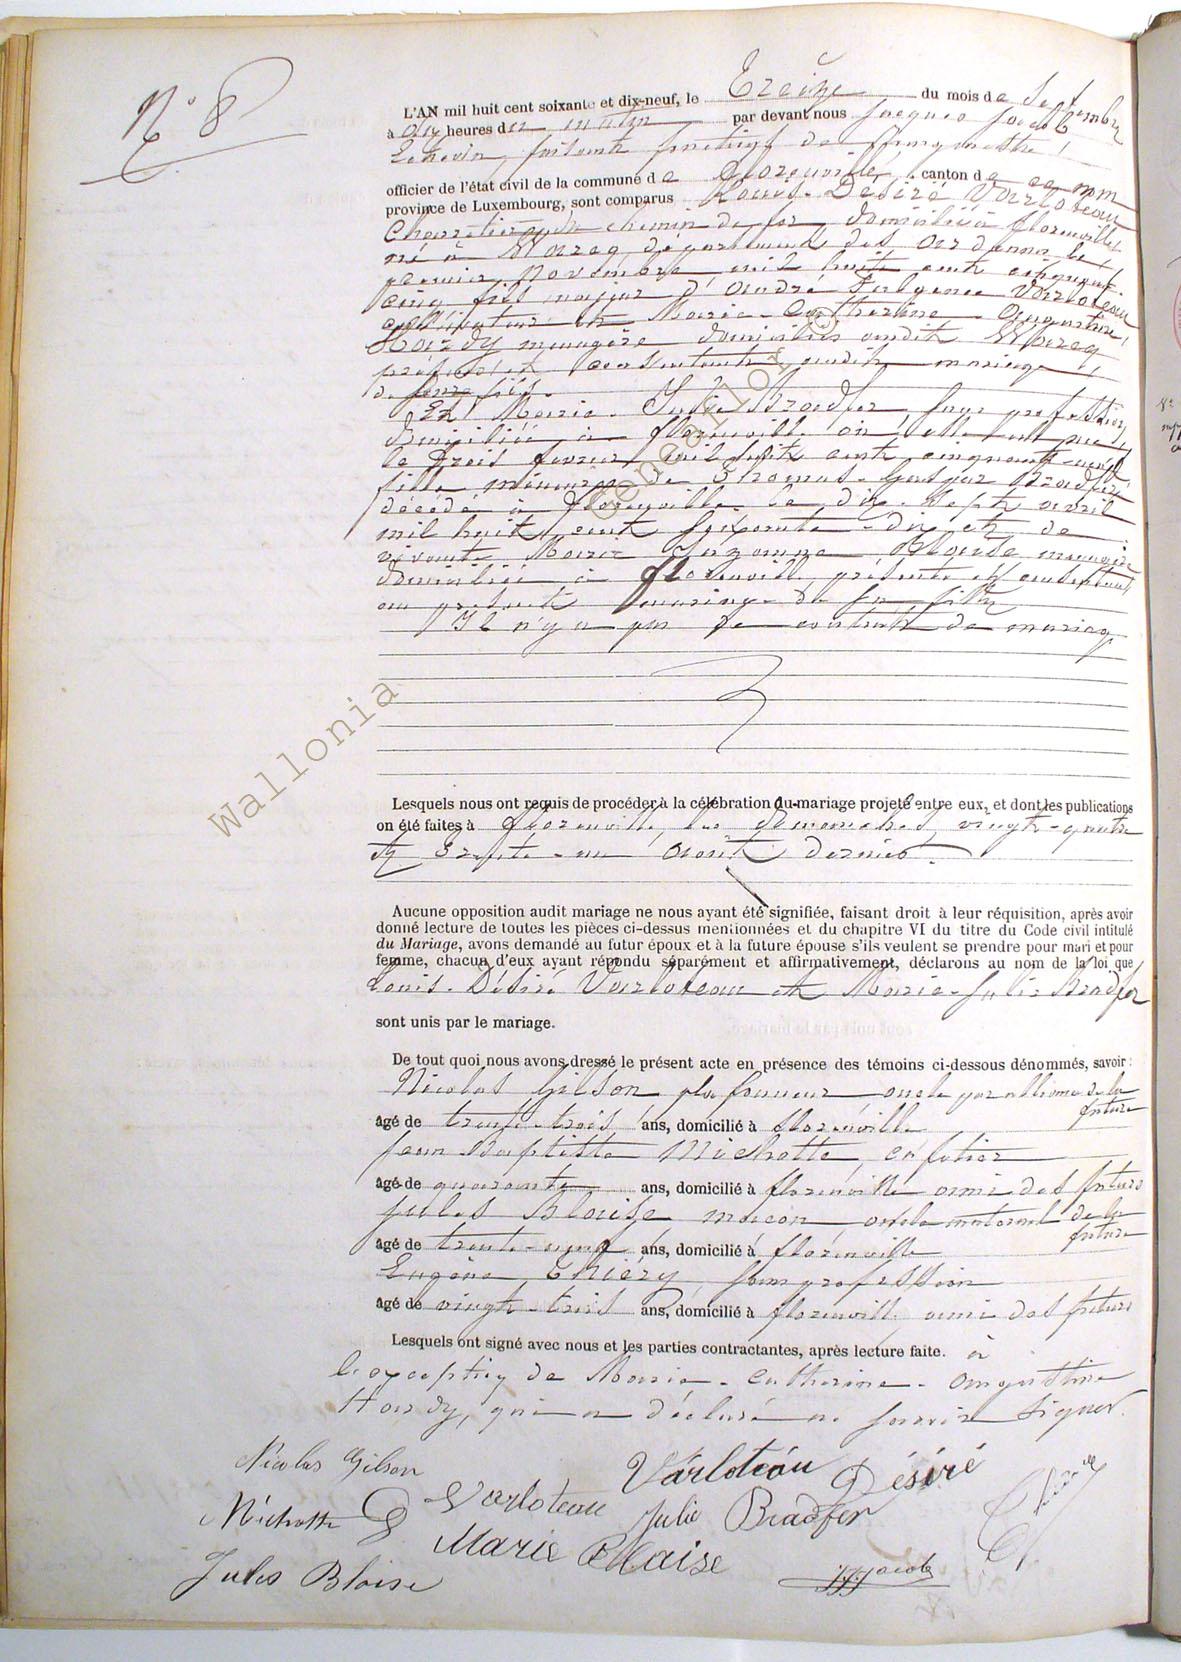 N° 8
L'AN mil huit cent soixante et dix-neuf, le Treize du mois de Septembre
à dix heures du matin par devant nous Jacques Jacob
Echevin faisant fonctions de Bourgmestre
officier de l'état civil de la commune de Florenville, canton de
province de Luxembourg, sont comparus Louis-Désiré Varloteau
Charretier au chemin de fer domicilié à Florenville
né à Warcq département des ardennes le
premier Novembre mil huit cent cinquante
cinq fils majeur d'André Fulgence Varloteau
cultivateur et Marie-Catherine-Augustine
Hardy menagère domiciliés audit Warcq
présents et consentants audit mariage
de leur fils.
Et Marie-Julie Bradfer sans profession
domiciliée à florenville où elle est née
le trois fevrier mil huit cent cinquante-neuf
fille mineure de Thomas-Gaspar Bradfer
décédé à florenville le dix-sept avril
mil huit cent soixante-dix et de
vivante Marie Suzanne Blaise menagère
domiciliée à florenville présente et consentant
au présent mariage de sa fille
Il n'y a pas de contrat de mariage
Wallonia Genealor ©
Lesquels nous ont requis de procéder à la célébration du mariage projeté entre eux, et dont les publications
on été faites à Florenville, les dimanches vingt-quatre
et trente-un août dernier.
Aucune opposition audit mariage ne nous ayant été signifiée, faisant droit à leur réquisition, après avoir
donné lecture de toutes les pièces ci-dessus mentionnées et du chapitre VI du titre du Code civil intitulé
du Mariage, avons demandé au futur époux et à la future épouse s'ils veulent se prendre pour mari et pour
femme, chacun d'eux ayant répondu séparément et affirmativement, déclarons au nom de la loi que
Louis-Désiré Varloteau et Marie-Julie Bradfer
sont unis par le mariage.
De tout quoi nous avons dressé le présent acte en présence des témoins ci-dessous dénommés, savoir :
Nicolas Gilson plafonneur oncle par alliance de la
future
âgé de trente-trois ans, domicilié à florenville
Jean Baptiste Michotte, cafetier
âgé de quarante ans, domicilié à florenville ami des futurs
Jules Blaise maçon oncle maternel de la
future
âgé de trente-neuf ans, domicilié à florenville
Eugène Thiéry sans profession
âgé de vingt-trois ans, domicilié à florenville ami des futurs
Lesquels ont signé avec nous et les parties contractantes, après lecture faite. à
l'exception de Marie-Catherine-Augustine
Hardy, qui a déclaré ne savoir signer.
Nicolas Gilson
Varloteau Désiré
Michotte
Varloteau
Julie Bradfer
Marie Blaise
Jules Blaise
JJJacob